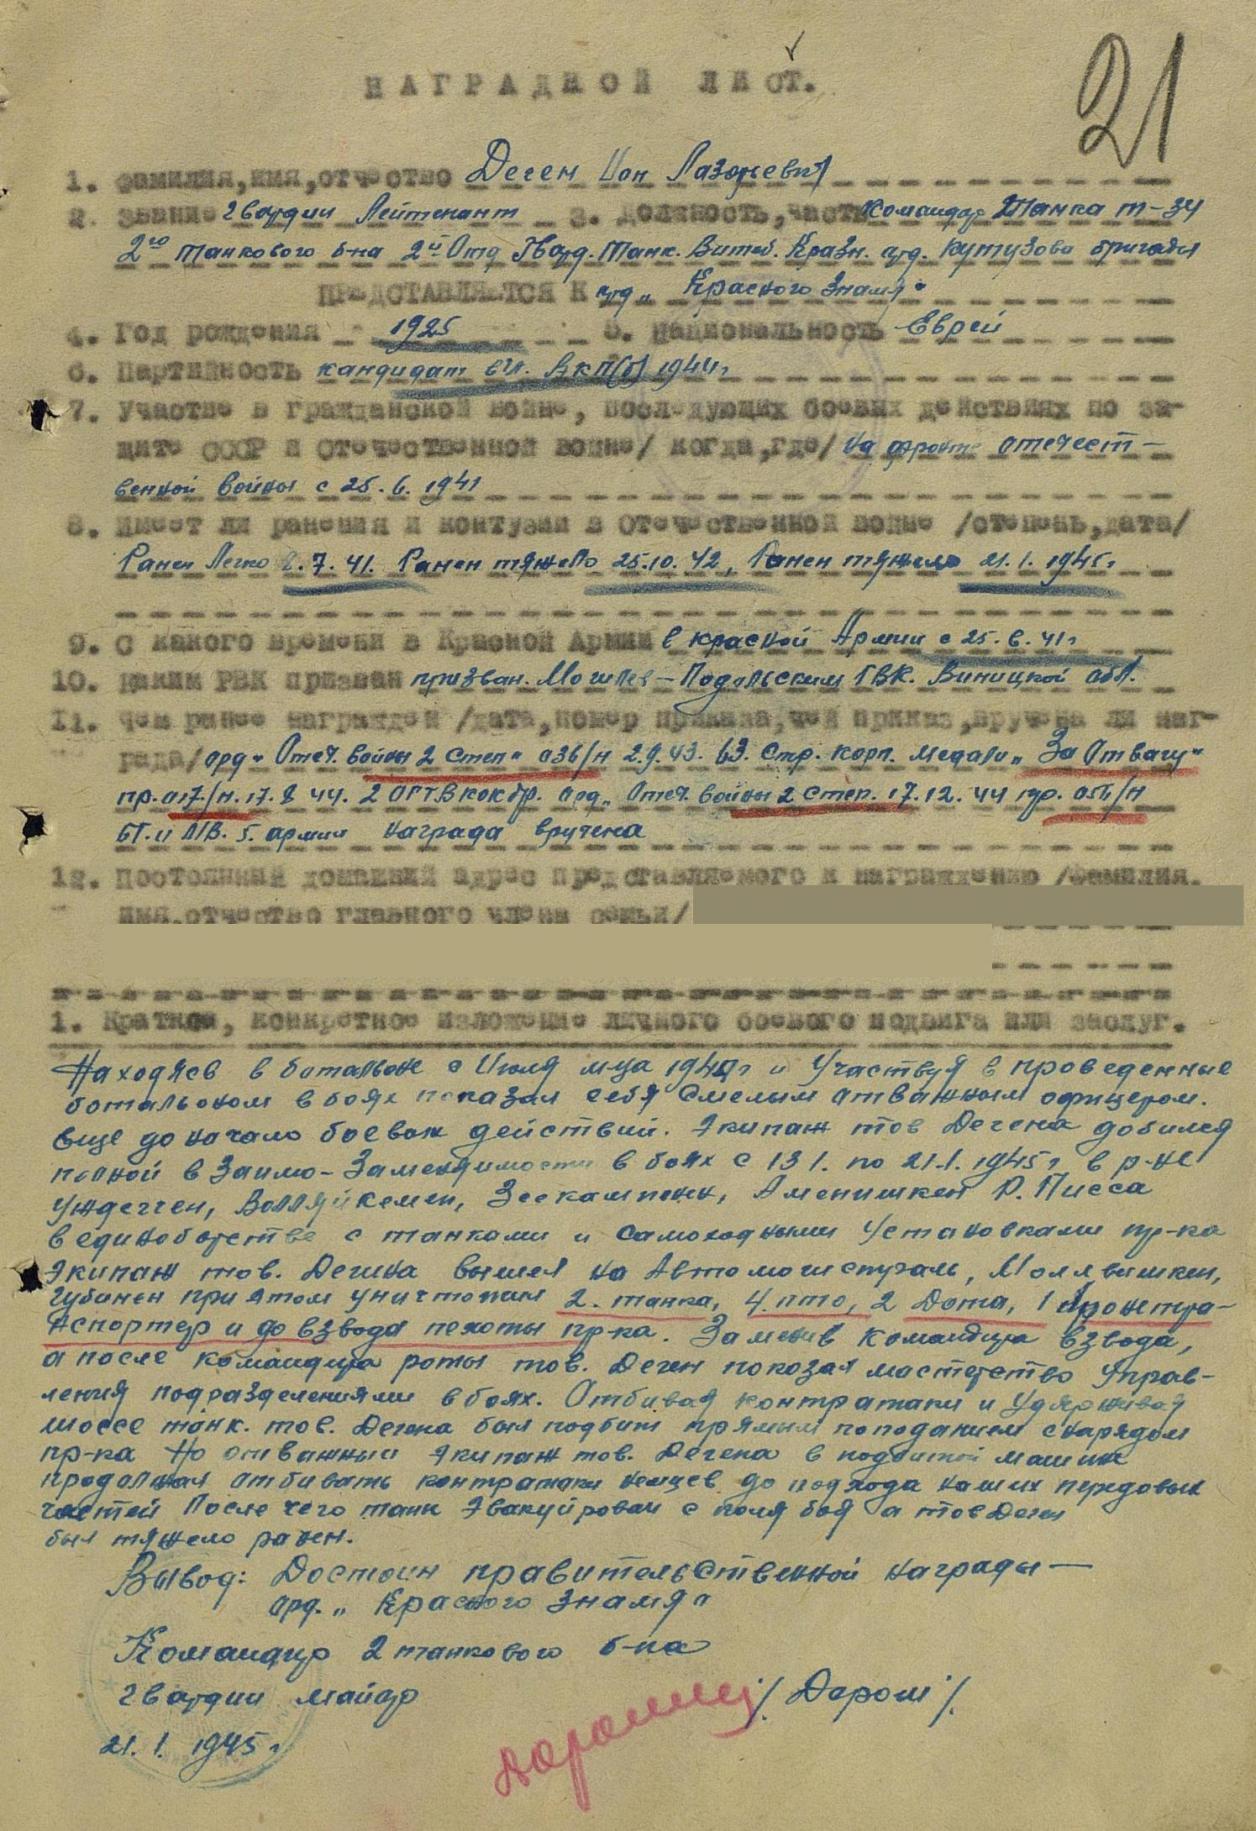 21
НАГРАДНОЙ ЛИСТ.
1. Фамилия, имя, отчество Деген Ион Лазаревич
2. Звание гвардии Лейтенант 3. Должность, часть командир танка т-34
2го танкового б-на 2й Отд Гвард. Танк. Витеб. Кразн. орд. Кутузова бригады
ПРЕДСТАВЛЯЕТСЯ К орд „Красного Знамя"
4. Год рождения 1925 5. Национальность Еврей
6. Партийность кандидат в чл. ВКП(б) 1944г
7. Участие в гражданской войне, последующих боевых действиях по за-
щите СССР и Отечественной войне/ когда, где/ на фронте отечест-
венной войны с 25.6.1941
8. Имеет ли ранения и контузии в Отечественной войне /степень, дата/
Ранен Легко 2.7.41. Ранен тяжело 25.10.42, Ранен тяжело 21.1.1945г.
9. С какого времени в Красной Армии в красной Армии с 25.6.41г
10. Каким РВК призван призван. Могилев-Подольским ГВК. Виницкой обл.
11. Чем ранее награжден /дата, номер приказа, чей приказ, вручена ли наг-
рада/ орд „Отеч. войны 2 степ" 036/н 2.9.43. 63. Стр. корп. медали „За Отвагу"
пр. 017/н. 17.8 44. 2 ОГТВ кок бр. орд „Отеч. войны 2 степ. 17.12.44 пр. 0П/н
БТ. и МВ. 5. армии награда вручена
12. Постоянный домашний адрес представляемого к награждению /фамилия,
имя, отчество главного члена семьи/
1. Краткое, конкретное изложение личного боевого подвига или заслуг.
Находясь в батальоне с Июля м-ца 1944г и Участвуя в проведенные
ботальоном в боях показал себя Смелым отважным офицером.
еще до начало боевых действий. Экипаж тов Дегена добился
полной в Заимо-Заменяимости в боях с 13 1. по 21.1.1945г в р-не
Уждегген,Волляйкемен, Зеекампенн, Аменишкен Р. Писса
в единоборстве с танками и самоходными Установками пр-ка
Экипаж тов. Дегина вышел на Автомогистраль, Моллвишкен,
Губинен при этом уничтожил 2. танка, 4. пто, 2 Дота, 1 бронетра-
нспортер и до взвода пехоты пр-ка. Заменив командира взвода,
а после командира роты тов. Деген показал мастерство Управ-
ления подразделениями в боях. Отбивая контратаки и Удерживая
шоссе танк. тов. Дегена был подбит прямым попаданием снарядом
пр-ка Но отважный экипаж тов. Дегена в подбитой машине
продолжал отбивать контратаки немцев до подхода наших передовых
частей После чего танк эвакуирован с поля боя а тов Деген
был тяжело ранен.
Вывод: Достоин правительственной награды —
орд. „Красного Знамя"
Командир 2 танкового б-на
гвардии майор /. Дорош /.
21.1.1945г